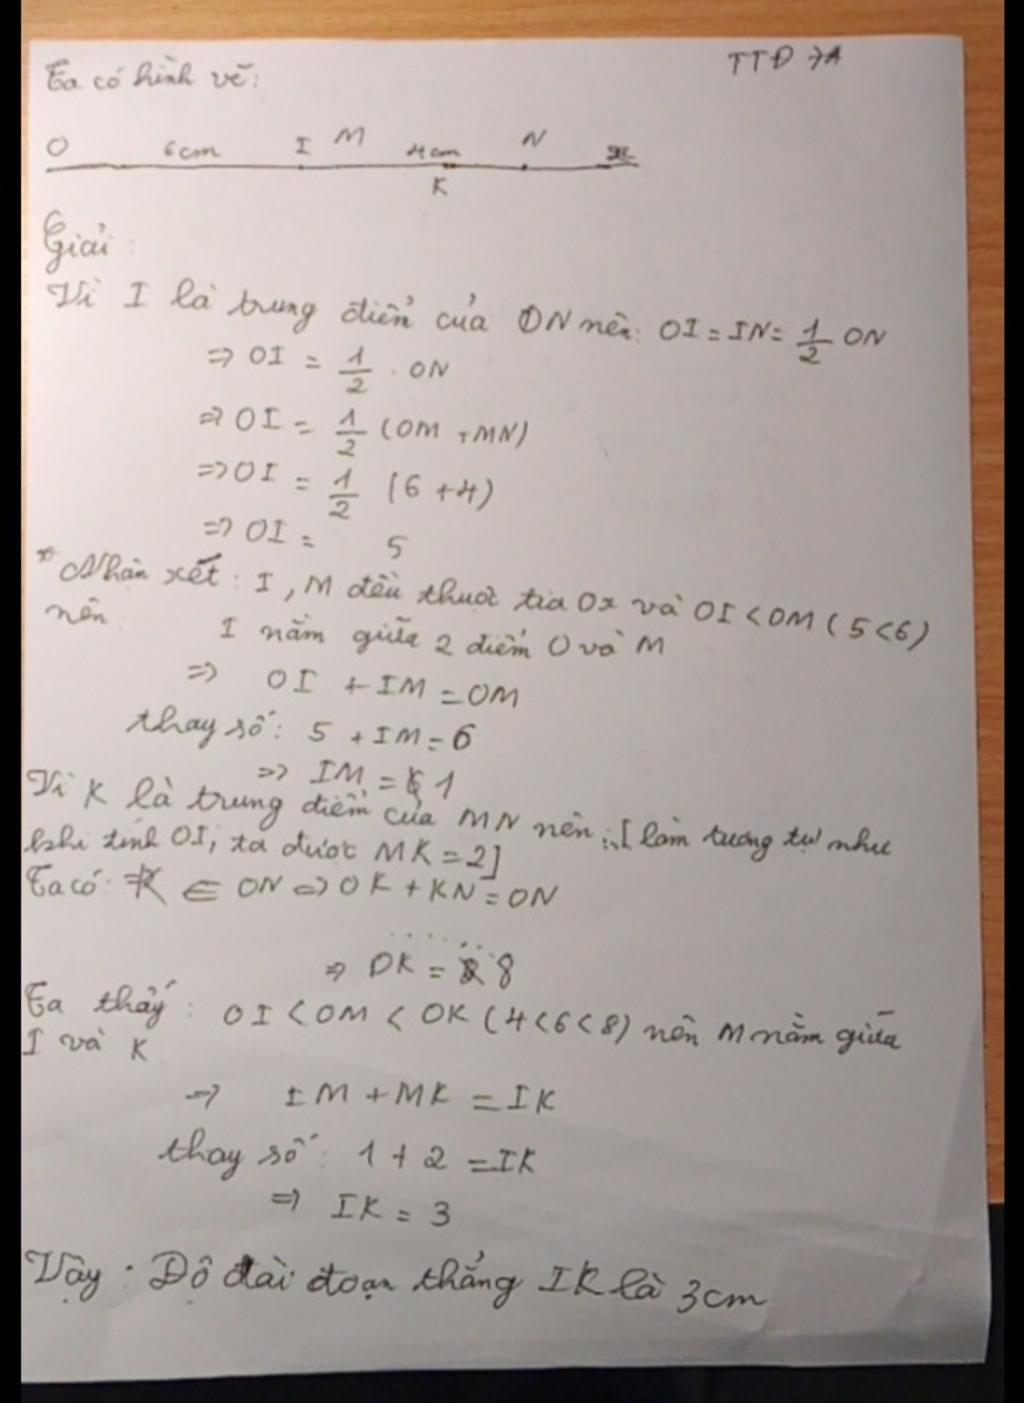 TTĐ 7A
Ta có hình vẽ:
O 6cm I M 4cm N x
K
Giải:
Vì I là trung điểm của ON nên: OI = IN = 1/2 ON
=> OI = 1/2 . ON
=> OI = 1/2 (OM + MN)
=> OI = 1/2 (6 + 4)
=> OI = 5
* Nhận xét: I, M đều thuộc tia Ox và OI < OM (5 < 6)
nên: I nằm giữa 2 điểm O và M
=> OI + IM = OM
thay số: 5 + IM = 6
=> IM = 1
Vì K là trung điểm của MN nên ...[làm tương tự như
khi tính OI, ta được MK = 2]
Ta có: K ∈ ON => OK + KN = ON
......
=> OK = 8
Ta thấy: OI < OM < OK (4 < 6 < 8) nên M nằm giữa
I và K
=> IM + MK = IK
thay số: 1 + 2 = IK
=> IK = 3
Vậy: Độ dài đoạn thẳng IK là 3cm